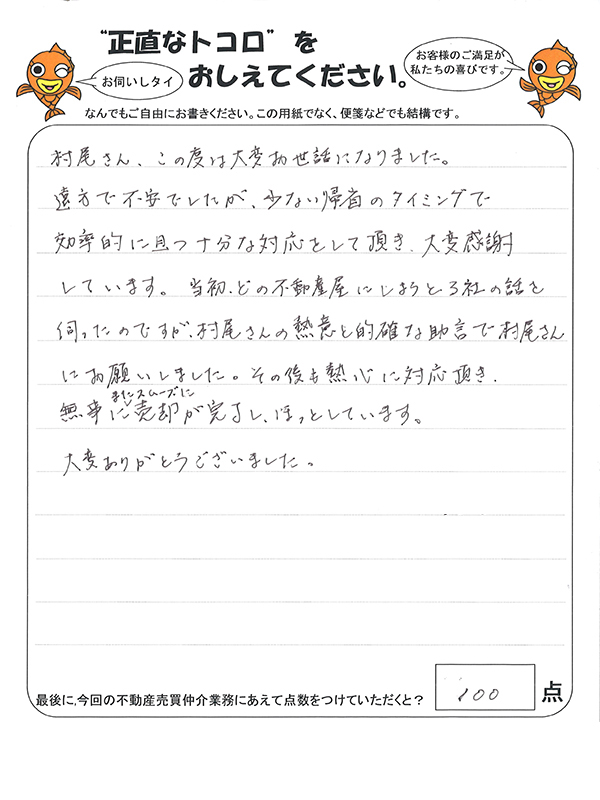 “正直なトコロ”を
お伺いしタイ
おしえてください。
お客様のご満足が
私たちの喜びです。
なんでもご自由にお書きください。この用紙でなく、便箋などでも結構です。
村尾さん、この度は大変お世話になりました。
遠方で不安でしたが、少ない帰省のタイミングで
効率的に且つ十分な対応をして頂き、大変感謝
しています。当初、どの不動産屋にしようと3社の話を
伺ったのですが、村尾さんの熱意と的確な助言で村尾さん
にお願いしました。その後も熱心に対応頂き、
またスムーズに
無事に売却が完了し、ほっとしています。
大変ありがとうございました。
最後に、今回の不動産売買仲介業務にあえて点数をつけていただくと?
100 点